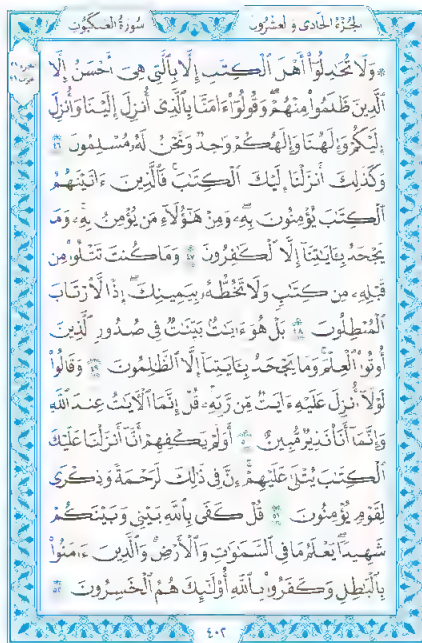 سورة العنكبوت
الجزء الحادي والعشرون
۞ وَلَا تُجَٰدِلُوٓا۟ أَهْلَ ٱلْكِتَٰبِ إِلَّا بِٱلَّتِى هِىَ أَحْسَنُ إِلَّا
ٱلَّذِينَ ظَلَمُوا۟ مِنْهُمْ وَقُولُوٓا۟ ءَامَنَّا بِٱلَّذِىٓ أُنزِلَ إِلَيْنَا وَأُنزِلَ
إِلَيْكُمْ وَإِلَٰهُنَا وَإِلَٰهُكُمْ وَٰحِدٌ وَنَحْنُ لَهُۥ مُسْلِمُونَ ٤٦
وَكَذَٰلِكَ أَنزَلْنَآ إِلَيْكَ ٱلْكِتَٰبَ فَٱلَّذِينَ ءَاتَيْنَٰهُمُ
ٱلْكِتَٰبَ يُؤْمِنُونَ بِهِۦ وَمِنْ هَٰٓؤُلَآءِ مَن يُؤْمِنُ بِهِۦ وَمَا
يَجْحَدُ بِـَٔايَٰتِنَآ إِلَّا ٱلْكَٰفِرُونَ ٤٧ وَمَا كُنتَ تَتْلُوا۟ مِن
قَبْلِهِۦ مِن كِتَٰبٍ وَلَا تَخُطُّهُۥ بِيَمِينِكَ إِذًا لَّٱرْتَابَ
ٱلْمُبْطِلُونَ ٤٨ بَلْ هُوَ ءَايَٰتٌۢ بَيِّنَٰتٌ فِى صُدُورِ ٱلَّذِينَ
أُوتُوا۟ ٱلْعِلْمَ وَمَا يَجْحَدُ بِـَٔايَٰتِنَآ إِلَّا ٱلظَّٰلِمُونَ ٤٩ وَقَالُوا۟
لَوْلَآ أُنزِلَ عَلَيْهِ ءَايَٰتٌ مِّن رَّبِّهِۦ قُلْ إِنَّمَا ٱلْءَايَٰتُ عِندَ ٱللَّهِ
وَإِنَّمَآ أَنَا۠ نَذِيرٌ مُّبِينٌ ٥٠ أَوَلَمْ يَكْفِهِمْ أَنَّآ أَنزَلْنَا عَلَيْكَ
ٱلْكِتَٰبَ يُتْلَىٰ عَلَيْهِمْ إِنَّ فِى ذَٰلِكَ لَرَحْمَةً وَذِكْرَىٰ
لِقَوْمٍ يُؤْمِنُونَ ٥١ قُلْ كَفَىٰ بِٱللَّهِ بَيْنِى وَبَيْنَكُمْ
شَهِيدًا يَعْلَمُ مَا فِى ٱلسَّمَٰوَٰتِ وَٱلْأَرْضِ وَٱلَّذِينَ ءَامَنُوا۟
بِٱلْبَٰطِلِ وَكَفَرُوا۟ بِٱللَّهِ أُو۟لَٰٓئِكَ هُمُ ٱلْخَٰسِرُونَ ٥٢
٤٠٢